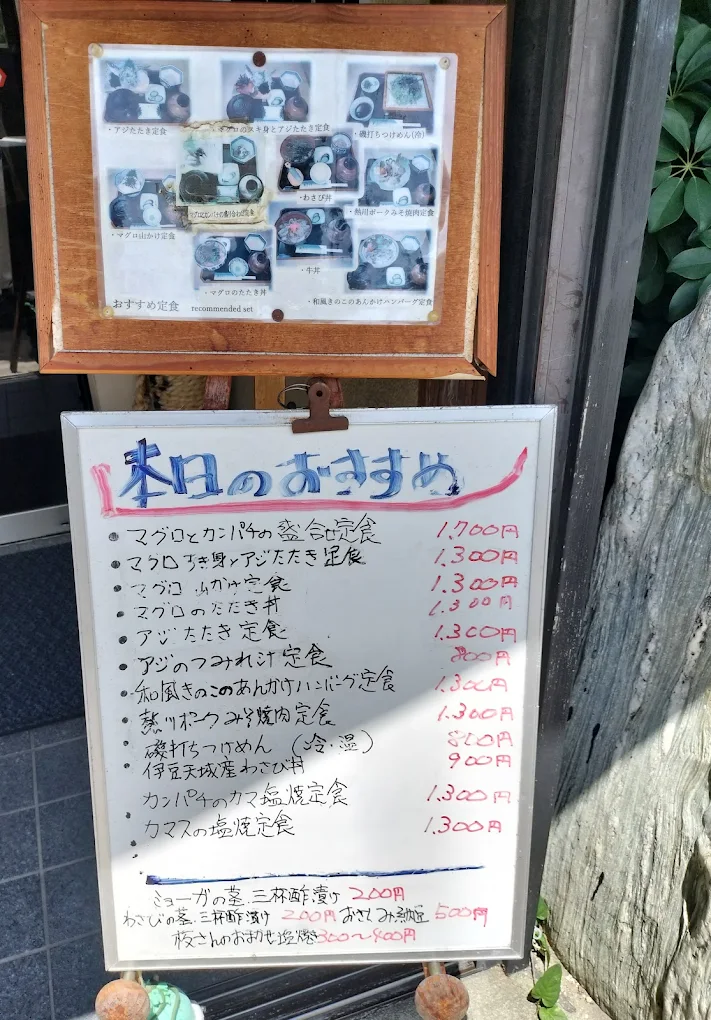 ・アジたたき定食
・マグロのスキ身とアジたたき定食
・磯打ちつけめん(冷)
マグロとカンパチの盛り合わせ定食
・わさび丼
・熱川ポークみそ焼肉定食
・マグロ山かけ定食
・マグロのたたき丼
・牛丼
・和風きのこのあんかけハンバーグ定食
おすすめ定食 recommended set
本日のおすすめ
マグロとカンパチの盛合せ定食 1.700円
マグロすき身とアジたたき定食 1.300円
マグロ山かけ定食 1.300円
マグロのたたき丼 1.300円
アジたたき定食 1.300円
アジのつみれ汁定食 800円
和風きのこのあんかけハンバーグ定食 1.300円
熱川ポークみそ焼肉定食 1.300円
磯打ちつけめん(冷・温) 800円
伊豆天城産わさび丼 900円
カンパチのカマ塩焼定食 1.300円
カマスの塩焼定食 1.300円
ミョーガの茎.三杯酢漬け 200円
わさびの茎.三杯酢漬け 200円 おさしみ納豆 500円
板さんのおまかせ塩焼 300〜400円